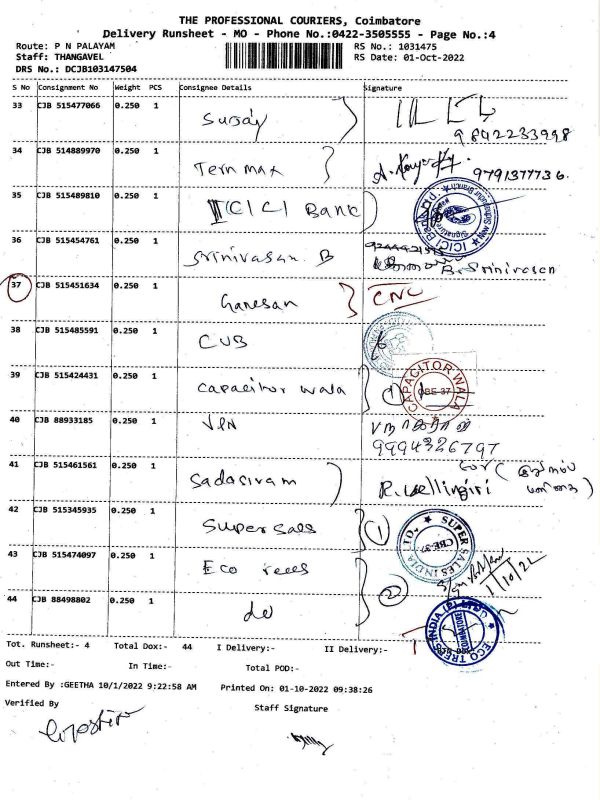 THE PROFESSIONAL COURIERS, Coimbatore
Delivery Runsheet - MO - Phone No.:0422-3505555 - Page No.:4
Route: P N PALAYAM
Staff: THANGAVEL
DRS No.: DCJB103147504
RS No.: 1031475
RS Date: 01-Oct-2022
S No Consignment No Weight PCS Consignee Details Signature
33 CJB 515477066 0.250 1
9842233998
34 CJB 514889970 0.250 1 Term max
9791377736.
35 CJB 515489810 0.250 1 ICICI Bank
ICICI Bank Ltd.
36 CJB 515454761 0.250 1 Srinivasan. B
B. Srinivasan
37 CJB 515451634 0.250 1 Ganesan CNC
38 CJB 515485591 0.250 1 CUB
39 CJB 515424431 0.250 1 Capacitor wala 1
CAPACITOR WALA
CBE-37
40 CJB 88933185 0.250 1 VPN
9994326797
41 CJB 515461561 0.250 1 Sadasivam
R. Vellingiri
42 CJB 515345935 0.250 1 Super Sales 1
SUPER SALES INDIA LTD
CBE-37
43 CJB 515474097 0.250 1 Eco
1/10/22
44 CJB 88498802 0.250 1 do 2
ECO TREES INDIA (P) LTD
Tot. Runsheet:- 4 Total Dox:- 44 I Delivery:- II Delivery:-
Out Time:- In Time:- Total POD:-
Entered By :GEETHA 10/1/2022 9:22:58 AM Printed On: 01-10-2022 09:38:26
Verified By Staff Signature